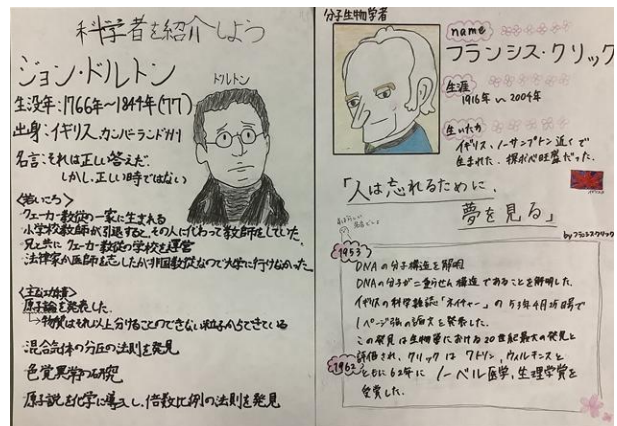 科学者を紹介しよう
ジョン・ドルトン
ドルトン
生没年:1766年~1844年(77)
出身:イギリス、カンバーランド州
名言:それは正しい答えだ。
しかし、正しい時ではない
<若いころ>
・クエーカー教徒の一家に生まれる
・小学校教師が引退すると、その人に代わって教師をしていた
・兄と共にクエーカー教徒の学校を運営
・法律家か医師を志したが非国教徒なので大学に行けなかった。
<主な功績>
原子論を発表した。
→物質はそれ以上分けることのできない粒子からできている
混合気体の分圧の法則を発見
色覚異常の研究
原子説を化学に導入し、倍数比例の法則を発見
分子生物学者
name
フランシス・クリック
生涯
1916年~2004年
生いたち
イギリス、ノーサンプトン近くで
生まれた。探求心旺盛だった。
「人は忘れるために、
夢を見る」
byフランシスクリック
1953
DNAの分子構造を解明
DNAの分子が二重らせん構造であることを解明した。
イギリスの科学雑誌「ネイチャー」の53年4月25日号で
1ページ強の論文を発表した。
この発見は生物学における20世紀最大の発見と
評価され、クリックはワトソン、ウィルキンスと
1962
ともに62年にノーベル医学、生理学賞を
受賞した。